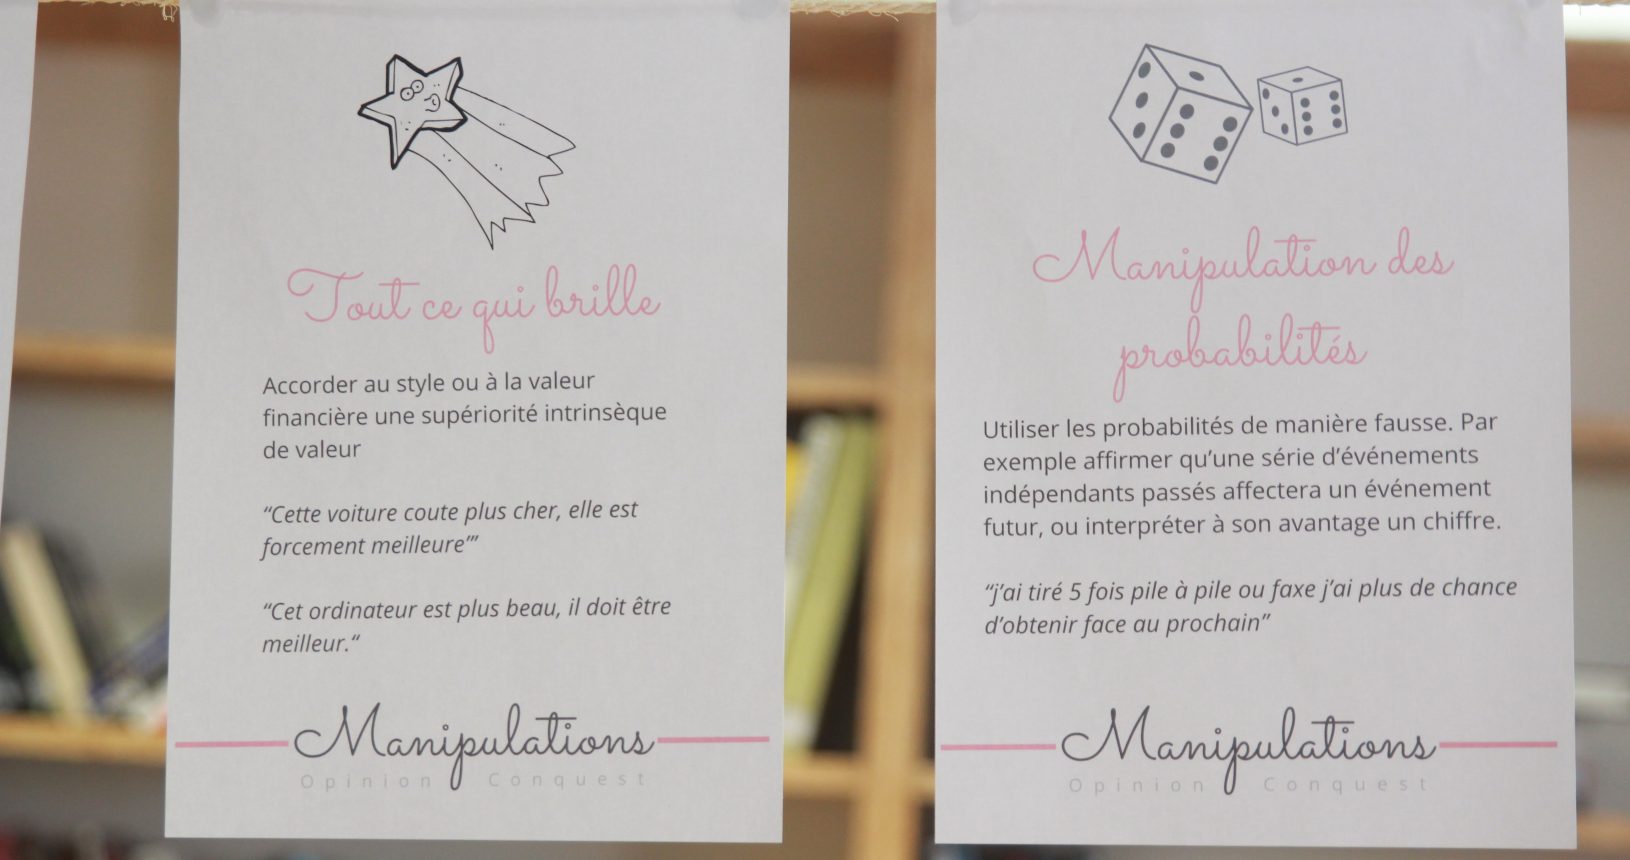 Tout ce qui brille
Accorder au style ou à la valeur
financière une supériorité intrinsèque
de valeur
“Cette voiture coute plus cher, elle est
forcement meilleure”’
“Cet ordinateur est plus beau, il doit être
meilleur.“
Manipulations
Opinion Conquest
Manipulation des
probabilités
Utiliser les probabilités de manière fausse. Par
exemple affirmer qu’une série d’événements
indépendants passés affectera un événement
futur, ou interpréter à son avantage un chiffre.
“j’ai tiré 5 fois pile à pile ou faxe j’ai plus de chance
d’obtenir face au prochain”
Manipulations
Opinion Conquest